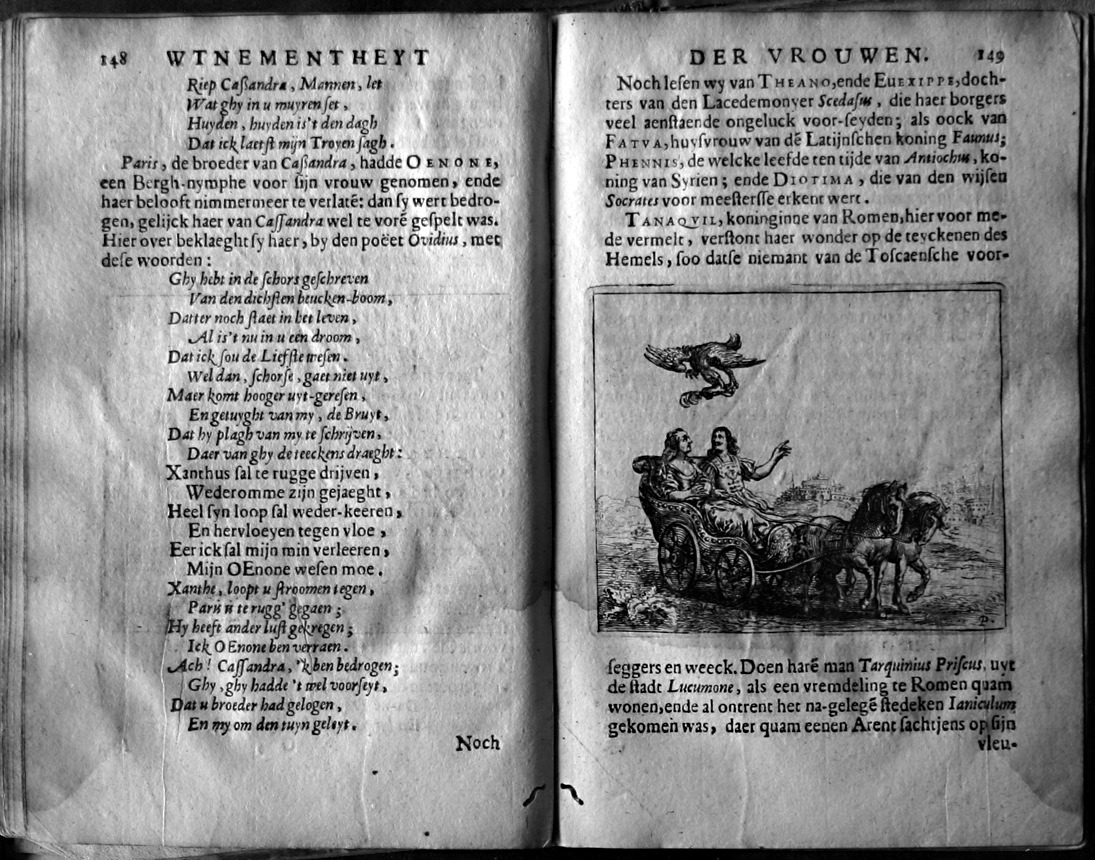 148 WTNEMENTHEYT
Riep Caſſandra, Mannen, let
Wat ghy in u muyren ſet,
Huyden, huyden is't den dagh
Dat ick laetſt mijn Troyen ſagh.
Paris, de broeder van Caſſandra, hadde OENONE,
een Bergh-nymphe voor ſijn vrouw genomen, ende
haer belooft nimmermeer te verlatē: dan ſy wert bedro-
gen, gelijck haer van Caſſandra wel te vorē geſpelt was.
Hier over beklaeght ſy haer, by den poëet Ovidius, met
deſe woorden:
Ghy hebt in de ſchors geſchreven
Van den dichſten beucken-boom,
Datter noch ſtaet in het leven,
Al is't nu in u een droom,
Dat ick ſou de Liefſte weſen.
Wel dan, ſchorſe, gaet niet uyt,
Maer komt hooger uyt-gereſen,
En getuyght van my, de Bruyt,
Dat hy plagh van my te ſchrijven,
Daer van ghy de teeckens draeght:
Xanthus ſal te rugge drijven,
Wederomme zijn gejaeght,
Heel ſyn loop ſal weder-keeren,
En hervloeyen tegen vloe,
Eer ick ſal mijn min verleeren,
Mijn OEnone weſen moe.
Xanthe, loopt u ſtroomen tegen,
Paris is te rugg' gegaen;
Hy heeft ander luſt gekregen;
Ick OEnone ben verraen.
Ach! Caſſandra, 'k ben bedrogen;
Ghy, ghy hadde 't wel voorſeyt,
Dat u broeder had gelogen,
En my om den tuyn geleyt.
Noch
DER VROUWEN. 149
Noch leſen wy van THEANO, ende EUEXIPPE, doch-
ters van den Lacedemonyer Scedaſus, die haer borgers
veel aenſtaende ongeluck voor-ſeyden; als oock van
FATVA, huyſvrouw van dē Latijnſchen koning Faunus;
PHENNIS, de welcke leefde ten tijde van Antiochus, ko-
ning van Syrien; ende DIOTIMA, die van den wijſen
Socrates voor meeſterſſe erkent wert.
TANAQVIL, koninginne van Romen, hier voor me-
de vermelt, verſtont haer wonder op de teyckenen des
Hemels, ſoo datſe niemant van de Toſcaenſche voor-
P.
ſeggers en weeck. Doen harē man Tarquinius Priſcus, uyt
de ſtadt Lucumone, als een vremdeling te Romen quam
wonen, ende al ontrent het na-gelegē ſtedeken Ianiculum
gekomen was, daer quam eenen Arent ſachtjens op ſijn
vleu-